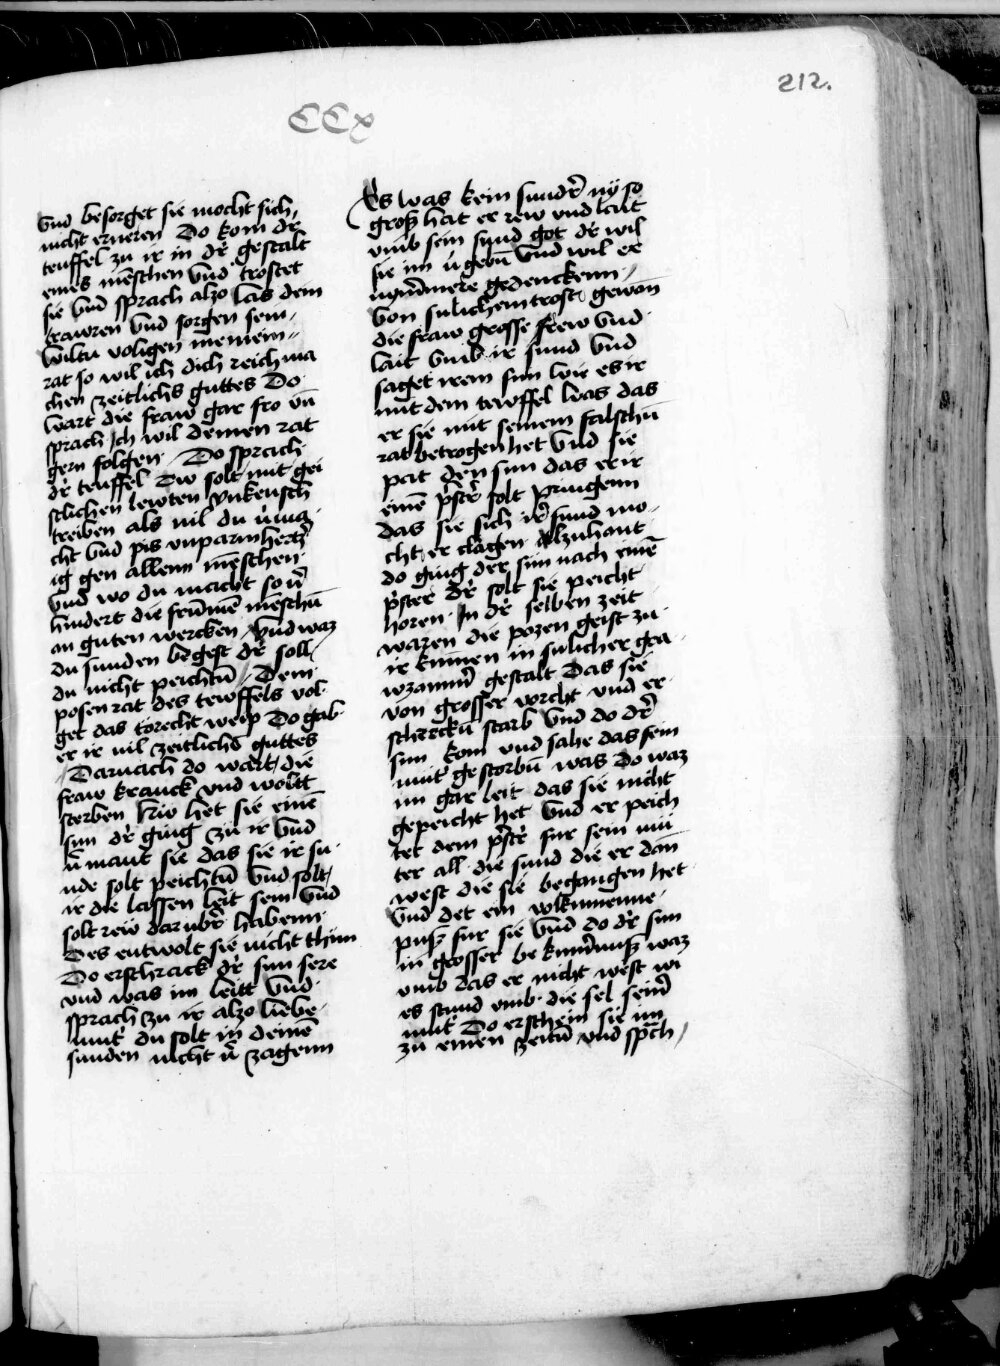 212.
CCx
Vnd besorget sie mocht sich,
nicht erneren Do kom dr̄
teuffel zu ir in dr̄ gestalt
eines mēschen vnd trostet
sie vnd sprach alzo las dem
trawren vnd sorgen sein,
wiltu voligen meinem
rat so wil ich dich reich ma
chen zeitlichs guttes Do
wart die fraw gar fro vn̄
sprach Ich wil deinen rat
gern folgen / Do sprach
dr̄ teuffel Dw solt mit gei
stlichen lewten vnkeusch
treiben als vil du v̄mag
cht vnd pis vnparmhertz
ig gen allenn mēschen
vnd wo du macht so v̄
hindert die frūmē mēschn̄
an guten wercken / vnd waz
du sunden begest dr̄ soll
du nicht peichtn̄ / Dem
posen rat des tewffels vol
get das torecht weip Do gab
er ir vil zeitlichs guttes
/ Darnach do wart die
fraw kranck vnd woltt
sterben Nw het sie einē
sun dr̄ ging zu ir vnd
v̄mant sie das sie ir su
nde solt peichtn̄ vnd solt,
ir die lassen leit sein vnd
solt rew darubr̄ habenn
Des entwolt sie nicht thun
Do erschrack dr̄ sun sere
vnd was im leitt vnd
sprach zu ir alzo liebe
mutr̄ du solt in deinē
sunden nicht v̄ zagenn
Es was kein sundr̄ ny so
groß hat er rew vnd leit
vmb sein sund got dr̄ wil
sie im v̄gebn̄ vnd wil er
nyndmere gedenckenn /
von sulichem trost gewan
die fraw grosse frew vnd
lait vmb ir sund vnd
saget irem sun wie es ir
mit dem tewffel was das
er sie mit seinem falschn̄
rat betrogen het vnd sie
pat den sun das er ir
einē pstr̄ solt pringenn
das sie sich ir̄ sund mo
cht er clagen Alzuhant
do ging der sun nach einē
pster dr̄ solt sie peicht
horen In dr̄ selben zeit
waren die pozen geist zu
ir kumen in sulicher gra
wzamm̄ gestalt Das sie
von grosser vorcht vnd er
schreckn̄ starb vnd do dr̄
sun kom vnd sahe das sein
mutr̄ gestorbn̄ was Do waz
im gar leit das sie nicht
gepeicht het vnd er peich
tet dem pstr̄ fur sein mu
ter all die sund die er dan
west die sie begangen het
vnd det ein volkumenne
puß fur sie vnd do dr̄ sun
in grosser bekumr̄nuß waz
vmb das er nicht west wi
es stund vmb die sel seinr̄
mutr̄ Do erschein sie im
zu einen zeitn̄ vnd spch /